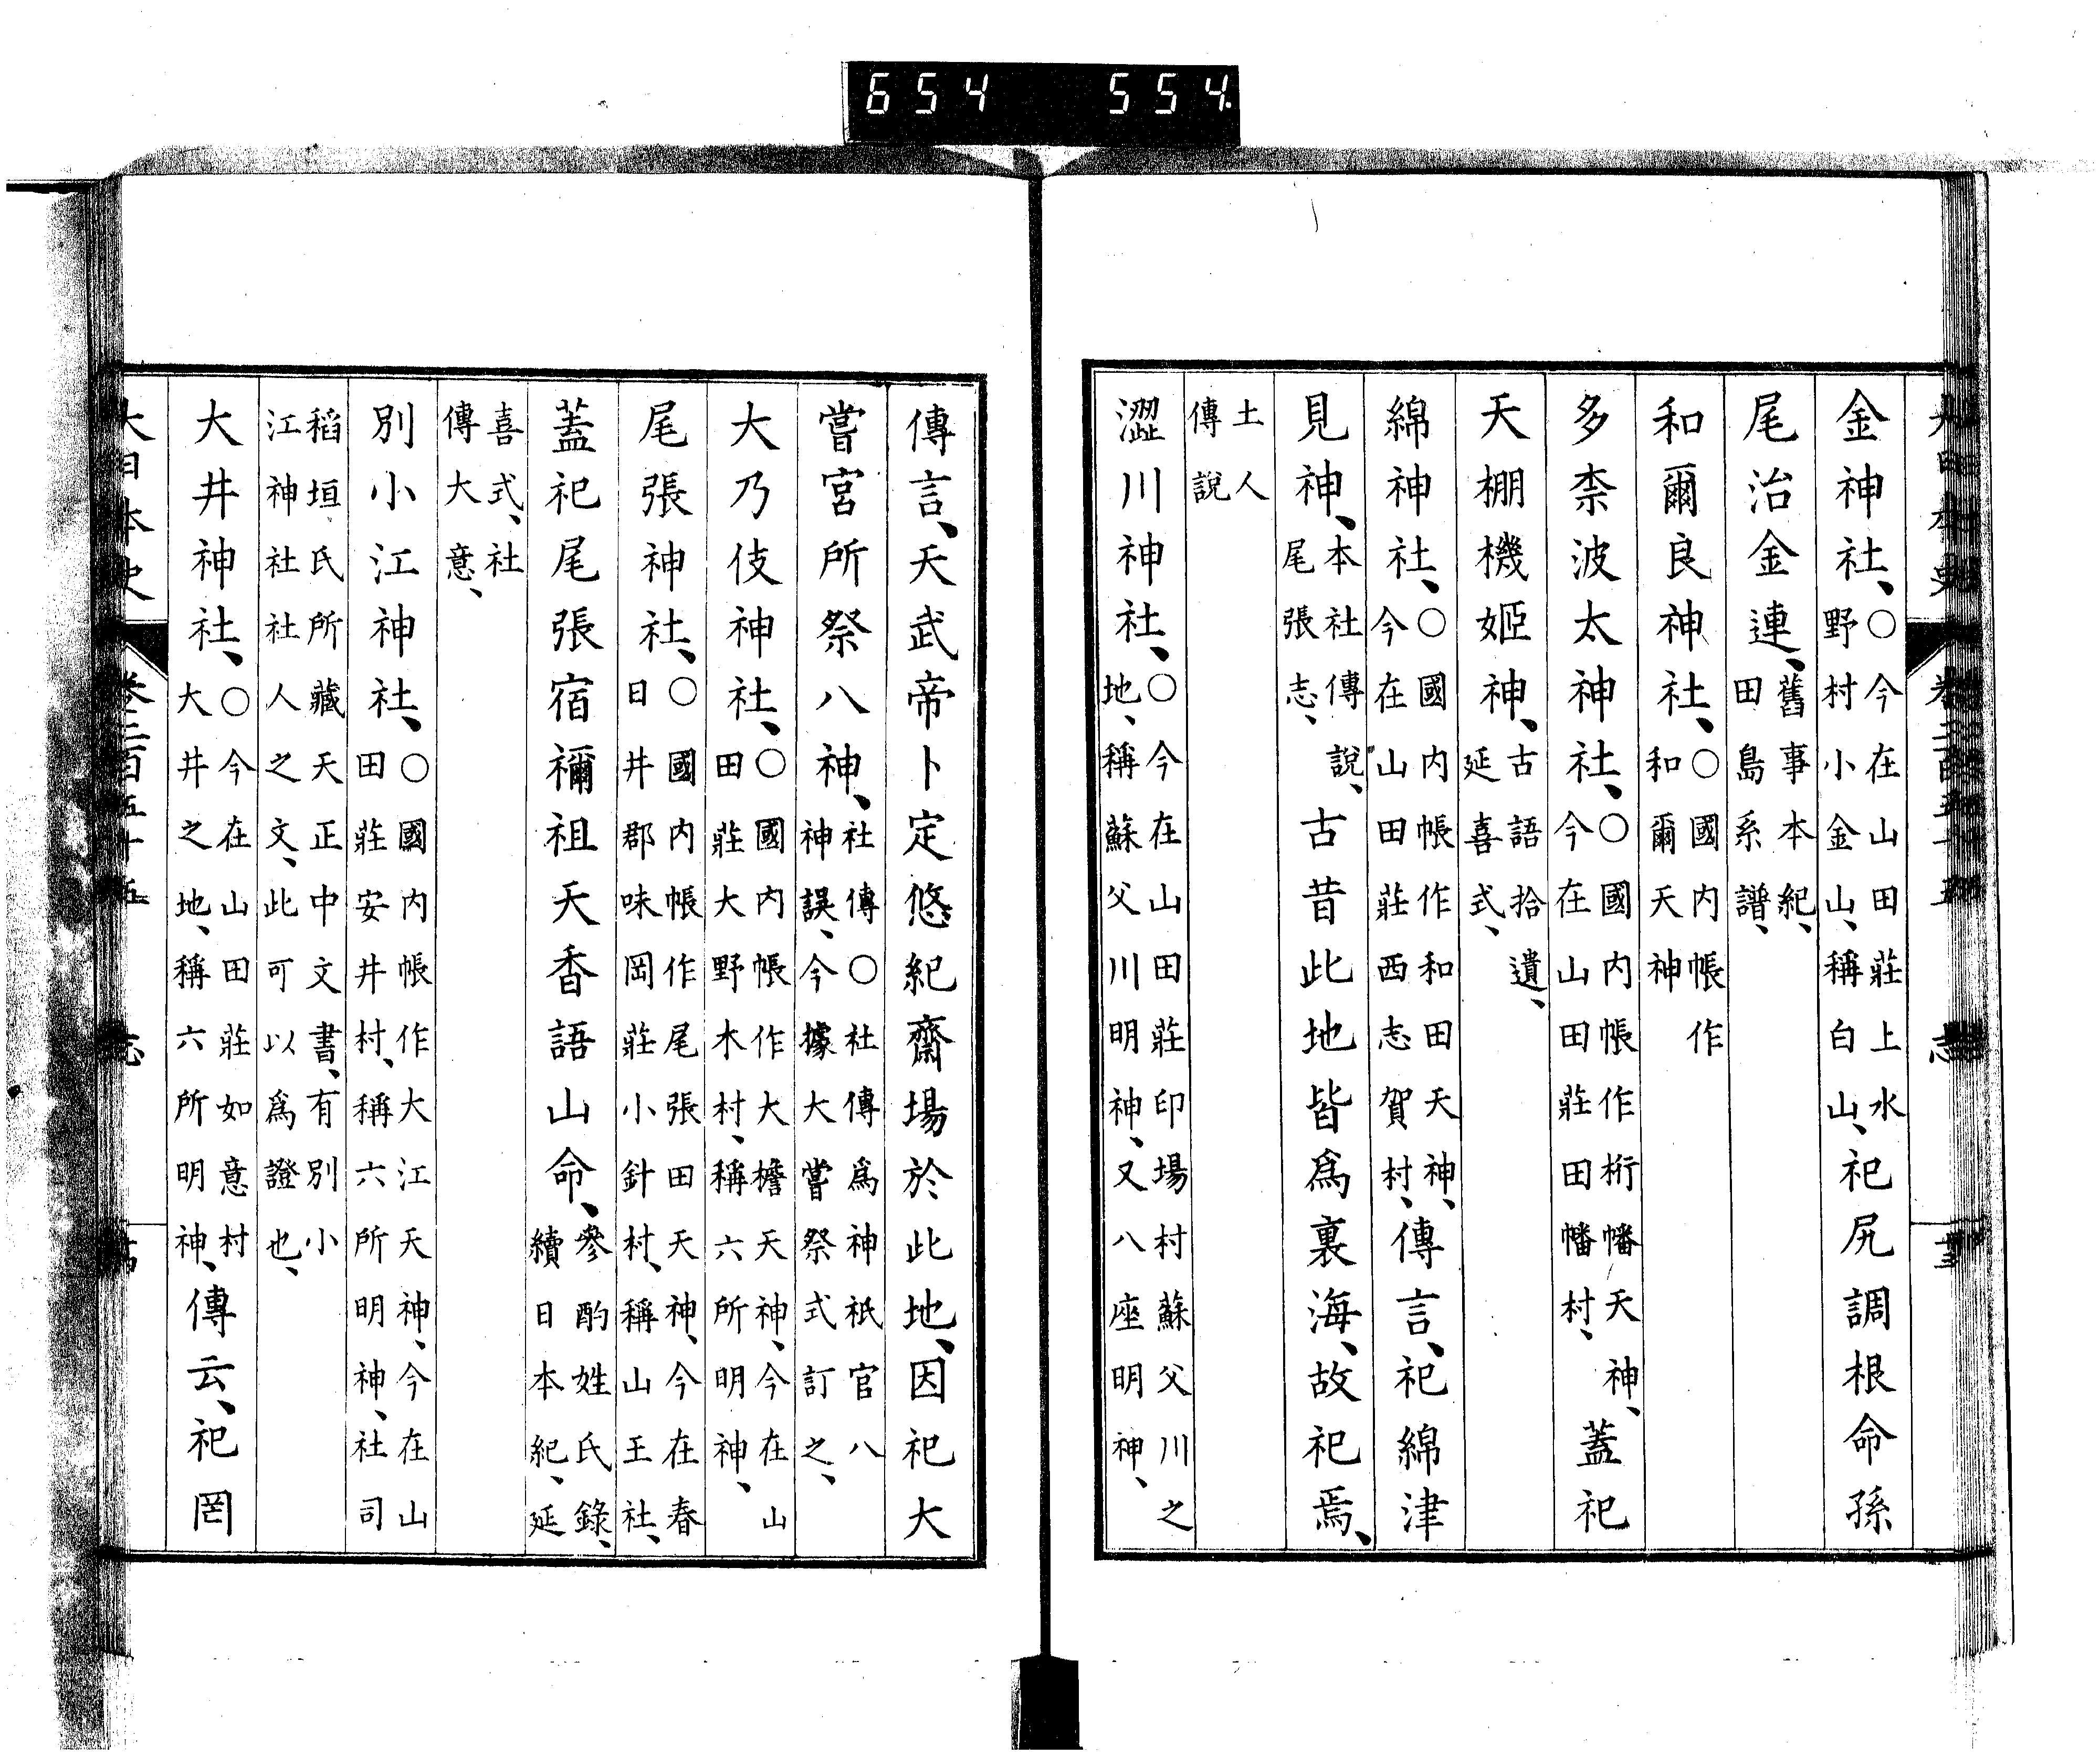 金神社、○今在山田莊上水野村小金山、稱白山、祀尻調根命孫
尾治金連、舊事本紀、田島系譜、
和爾良神社、○國内帳作和爾天神
多柰波太神社、○國内帳作桁幡天神、今在山田莊田幡村、蓋祀
天棚機姬神、古語拾遺、延喜式、
綿神社、○國内帳作和田天神、今在山田莊西志賀村、傳言、祀綿津
見神、本社傳說、尾張志、古昔此地皆爲裏海、故祀焉、
土人傳說
澀川神社、○今在山田莊印場村蘇父川之地、稱蘇父川明神、又八座明神、
傳言、天武帝卜定悠紀齋場於此地、因祀大
嘗宮所祭八神、社傳○社傳爲神祇官八神誤、今據大嘗祭式訂之、
大乃伎神社、○國内帳作大檐天神、今在山田莊大野木村、稱六所明神、
尾張神社、○國内帳作尾張田天神、今在春日井郡味岡莊小針村、稱山王社、
蓋祀尾張宿禰祖天香語山命、參酌姓氏錄、續日本紀、延
喜式、社傳大意、
別小江神社、○國内帳作大江天神、今在山田莊安井村、稱六所明神、社司
稻垣氏所藏天正中文書、有別小江神社社人之文、此可以爲證也、
大井神社、○今在山田莊如意村大井之地、稱六所明神、傳云、祀罔
大日本史 卷二百五十五 志
654 554